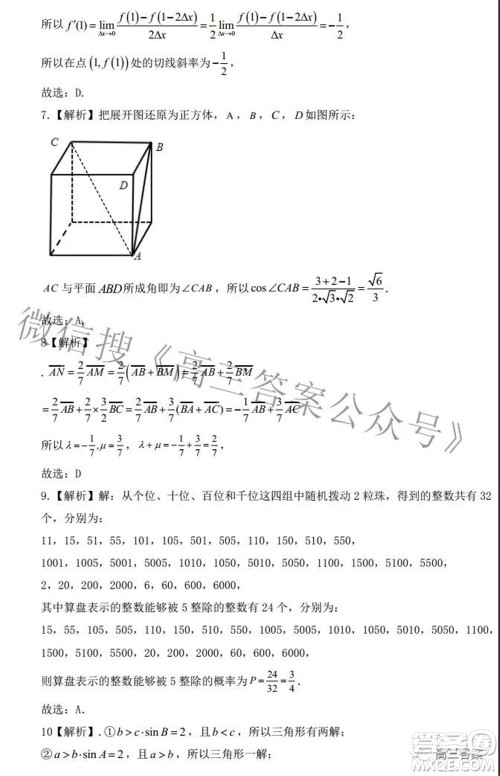 所以 f′(1)=lim_{Δx→0} (f(1)−f(1−2Δx))/(2Δx)=1/2 lim_{Δx→0} (f(1)−f(1−2Δx))/Δx=−1/2，
所以在点(1, f(1))处的切线斜率为−1/2，
故选：D.
7.【解析】把展开图还原为正方体，A，B，C，D如图所示：
C
B
D
A
AC与平面ABD所成角即为∠CAB，所以cos∠CAB=(3+2−1)/(2·√3·√2)=√6/3.
故选：A.
8【解析】
.AN=2/7 AM=2/7(AB+BM)=2/7 AB+2/7 BM
=2/7 AB+2/7×3/2 BC=2/7 AB+3/7(BA+AC)=−1/7 AB+3/7 AC
所以λ=−1/7,μ=3/7，λ+μ=−1/7+3/7=2/7
故选：D
9.【解析】解：从个位、十位、百位和千位这四组中随机拨动2粒珠，得到的整数共有32
个，分别为：
11，15，51，55，101，105，501，505，110，150，510，550，
1001，1005，5001，5005，1010，1050，5010，5050，1100，1500，5100，5500，
2，20，200，2000，6，60，600，6000，
其中算盘表示的整数能够被5整除的整数有24个，分别为：
15，55，105，505，110，150，510，550，1005，5005，1010，1050，5010，5050，1100，
1500，5100，5500，20，200，2000，60，600，6000，
则算盘表示的整数能够被5整除的概率为P=24/32=3/4.
故选：A.
10【解析】.①b>c·sinB=2，且b<c，所以三角形有两解；
②a>b·sinA=2，且a>b，所以三角形一解；
微信搜《高三答案公众号》
高三答案